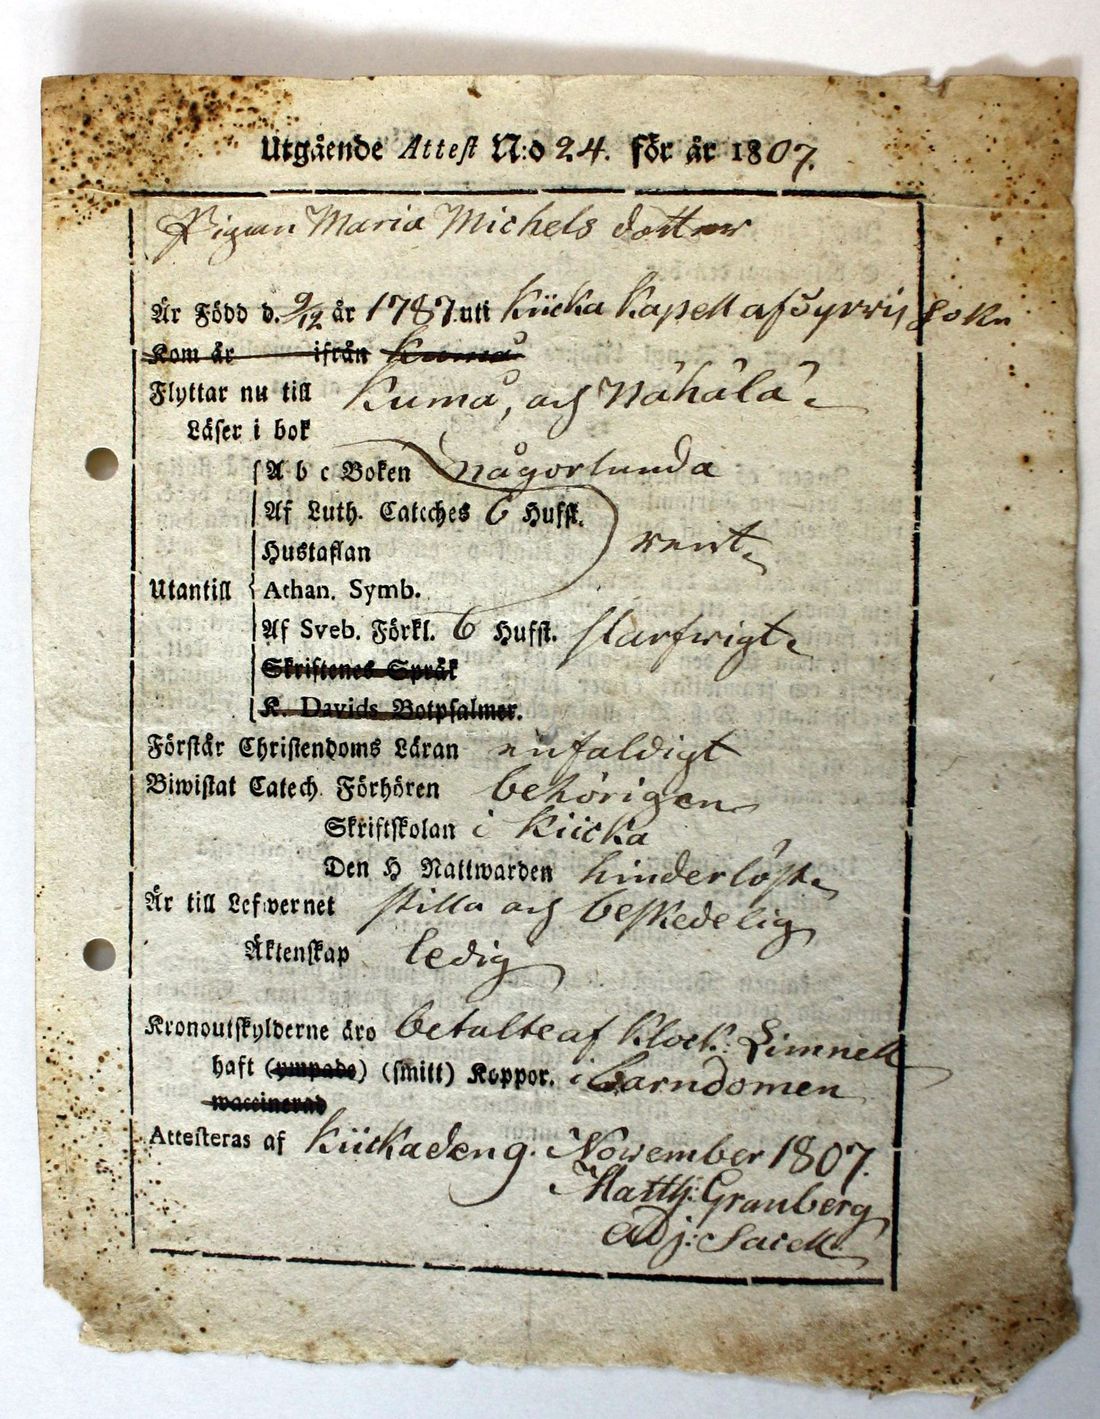 Utgående Attest N:o 24. för år 1807.
Pigan Maria Michels dotter
Är Född d. 9/12 år 1787. uti Kiicka Kapell af Tyrvis Sokn
Kom år ifrån Kumå
Flyttar nu till Kumå, och Nähälä
Läser i bok
A b c Boken någorlunda
Af Luth. Cateches 6 Hufst.
Hustaflan rent
Utantill Athan. Symb.
Af Sveb. Förkl. 6 Hufst. slarfwigt
Skriftenes Språk
K. Davids Botpsalmer.
Förstår Christendoms Läran enfaldigt
Biwistat Catech. Förhören behörigen
Skriftskolan i Kiicka
Den H Nattwarden hinderlöst
Är till Lefwernet stilla och beskedelig
Äktenskap ledig
Kronoutskylderne äro betalte af Klock. Limnell
haft (ympade) (smitt) Koppor. i barndomen
waccinerad
Attesteras af Kiicka den 9. November 1807.
Matth: Granberg
Adj: Sacell.